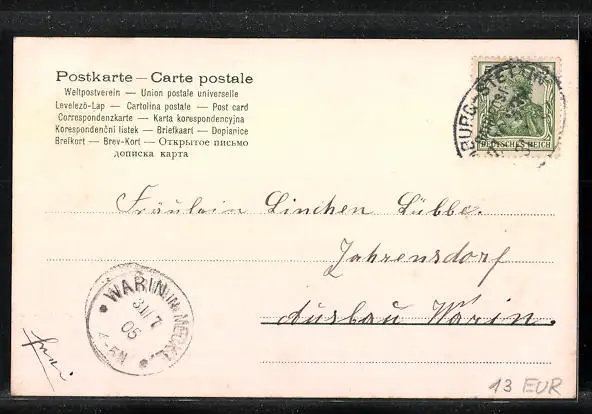 Postkarte — Carte postale
Weltpostverein — Union postale universelle
Levelezö-Lap — Cartolina postale — Post card
Correspondenzkarte — Karta korespondencyjna
Korespondenční listek — Briefkaart — Dopisnice
Breikort — Brev-Kort — Открытое письмо
дописка карта
DEUTSCHES REICH
Fräulein Linchen Lübbe.
Jahrensdorf
Ausbau Warin.
WARIN IN MECKL
05
13 EUR